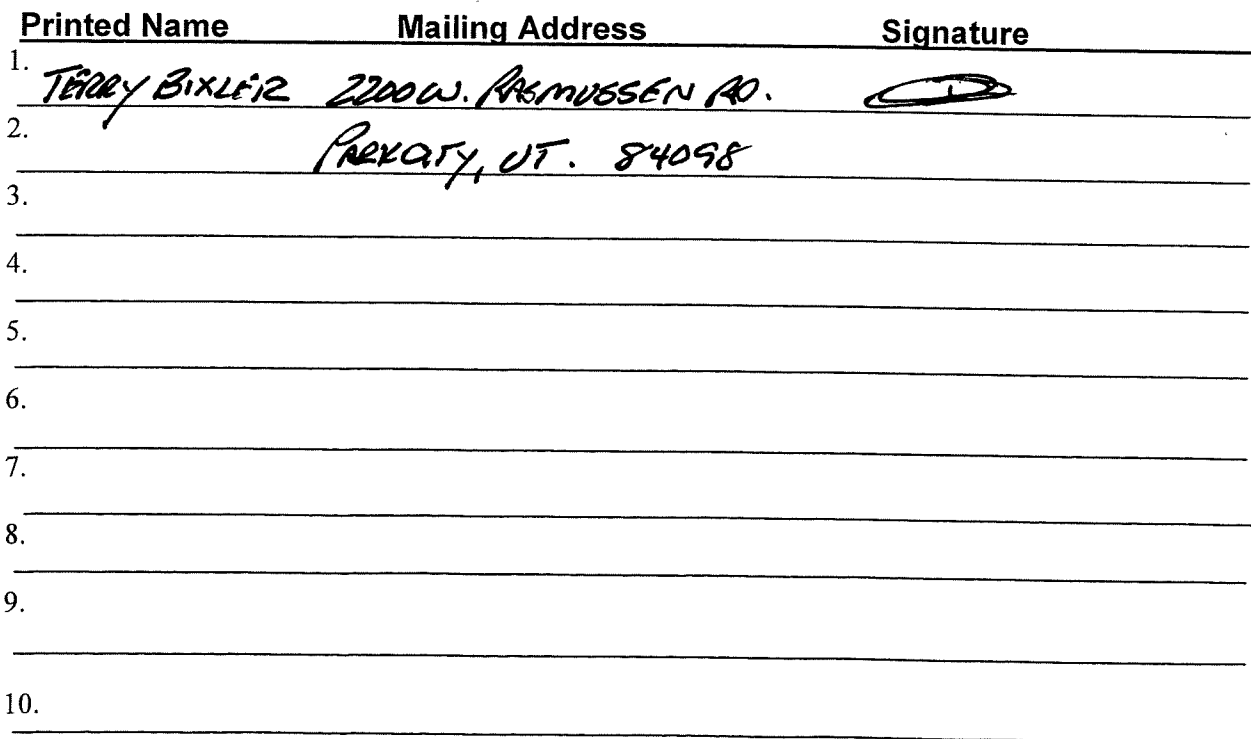 Printed Name Mailing Address Signature
1. TERRY BIXLER 2200 W. RASMUSSEN RD.
2. PARK CITY, UT. 84098
3.
4.
5.
6.
7.
8.
9.
10.